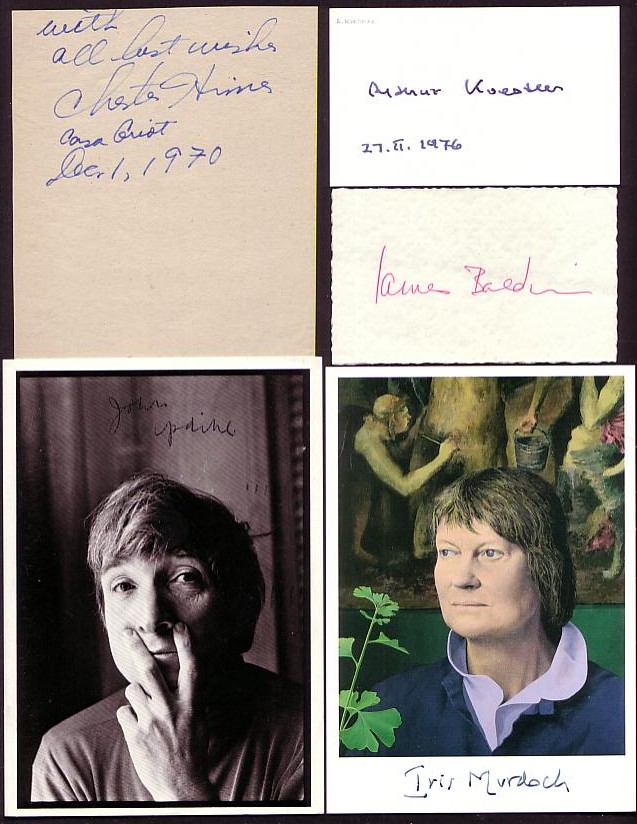 with
all best wishes
Chester Himes
Casa Griot
Dec. 1, 1970
Arthur Koestler
27. II. 1976
James Baldwin
John
Updike
Iris Murdoch